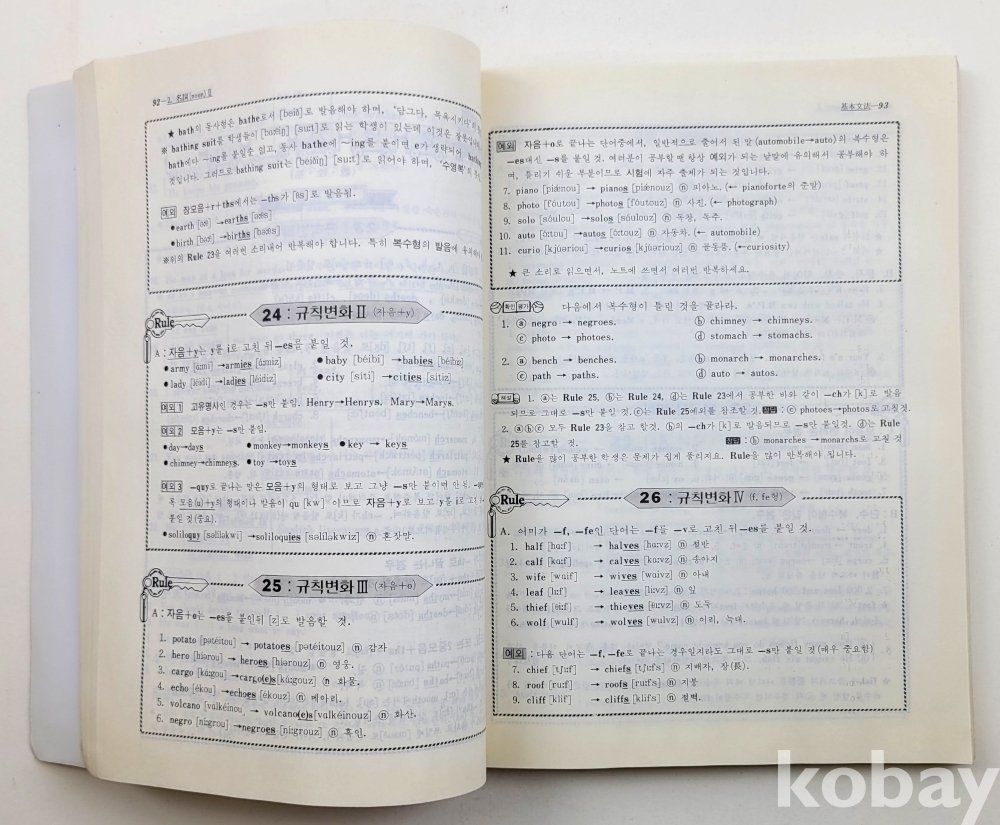 92-2. 名詞(noun) Ⅱ
★ bath의 동사형은 bathe로서 [beið]로 발음해야 하며, '담그다, 목욕시키다'의
※ bathing suit를 학생들이 [bɑːθiŋ] [suːt]로 읽는 학생이 있는데 이것은
bath에다 ~ing를 붙일순 없고, 동사 bathe에 ~ing를 붙이면 e가 생략되어
것입니다. 그러므로 bathing suit는 [beiðiŋ] [suːt]로 읽어야 하며, '수영복'의
예외 장모음+r+ths에서는 -ths가 [θs]로 발음됨.
●earth [əːθ] →earths [əːθs]
●birth [bəːθ] →births [bəːθs]
※위의 Rule 23을 여러번 소리내어 반복해야 합니다. 특히 복수형의 발음에
Rule 24 : 규칙변화 Ⅱ (자음+y)
A : 자음+y는 y를 i로 고친 뒤 -es를 붙일 것.
●army [ɑːmi] →armies [ɑːmiz] ●baby [béibi] →babies [béibiz]
●lady [léidi] →ladies [léidiz] ●city [síti] →cities [sítiz]
예외 1 고유명사인 경우는 -s만 붙임. Henry→Henrys. Mary→Marys.
예외 2 모음+y는 -s만 붙임.
●day→days ●monkey→monkeys ●key → keys
●chimney→chimneys. ●toy →toys
예외 3 -quy로 끝나는 말은 모음+y의 형태로 보고 그냥 -s만 붙이면 안됨.
록 모음(u)+y의 형태이나 발음이 qu [kw] 이므로 자음+y로 보고 y를 i로
붙일 것(중요).
●soliloquy [səlíləkwi] →soliloquies [səlíləkwiz] ⓝ 혼잣말.
Rule 25 : 규칙변화 Ⅲ (자음+o)
A : 자음+o는 -es를 붙인뒤 [z]로 발음할 것.
1. potato [pətéitou] → potatoes [pətéitouz] ⓝ 감자
2. hero [hiərou] → heroes [hiərouz] ⓝ 영웅.
3. cargo [kɑːgou] →cargo(e)s [kɑːgouz] ⓝ 화물.
4. echo [ékou] →echoes [ékouz] ⓝ 메아리.
5. volcano [vɑlkéinou, → volcano(e)s [vɑlkéinouz] ⓝ 화산.
6. negro [niːgrou] →negroes [niːgrouz] ⓝ 흑인.
基本文法-93
예외 자음+o로 끝나는 단어중에서, 일반적으로 줄어서 된 말(automobile→auto)의 복수형은
-es대신 -s를 붙일 것. 여러분이 공부할땐 항상 예외가 되는 낱말에 유의해서 공부해야 하
며, 틀리기 쉬운 부분이므로 시험에 자주 출제가 되는 것입니다.
7. piano [piǽnou] → pianos [piǽnouz] ⓝ 피아노. (← pianoforte의 준말)
8. photo [fóutou] →photos [fóutouz] ⓝ 사진. (← photograph)
9. solo [sóulou] →solos [sóulouz] ⓝ 독창, 독주.
10. auto [ɔːtou] →autos [ɔːtouz] ⓝ 자동차. (← automobile)
11. curio [kjúəriou] →curios [kjúəriouz] ⓝ 골동품. (←curiosity)
★ 큰 소리로 읽으면서, 노트에 쓰면서 여러번 반복하세요.
확인 평가 다음에서 복수형이 틀린 것을 골라라.
1. ⓐ negro → negroes. ⓑ chimney → chimneys.
ⓒ photo → photoes. ⓓ stomach → stomachs.
2. ⓐ bench → benches. ⓑ monarch → monarches.
ⓒ path → paths. ⓓ auto → autos.
해설 1. ⓐ는 Rule 25, ⓑ는 Rule 24, ⓓ는 Rule 23에서 공부한 바와 같이 -ch가 [k]로 발음
되므로 그대로 -s만 붙일 것. ⓒ는 Rule 25예외를 참조할것. 정답 : ⓒ photoes→photos로 고칠것.
2. ⓐⓑⓒ 모두 Rule 23을 참고 할것. ⓑ의 -ch가 [k]로 발음되므로 -s만 붙일것. ⓓ는 Rule
25를 참고할 것. 정답 : ⓑ monarches →monarchs로 고칠 것
★ Rule을 많이 공부한 학생은 문제가 쉽게 풀리지요. Rule을 많이 반복해야 됩니다.
Rule 26 : 규칙변화 Ⅳ (f, fe형)
A. 어미가 -f, -fe인 단어는 -f를 -v로 고친 뒤 -es를 붙일 것.
1. half [hɑːf] → halves [hɑːvz] ⓝ 절반
2. calf [kɑːf] → calves [kɑːvz] ⓝ 송아지
3. wife [wɑif] → wives [wɑivz] ⓝ 아내
4. leaf [liːf] → leaves [liːvz] ⓝ 잎
5. thief [θiːf] → thieves [θiːvz] ⓝ 도둑
6. wolf [wulf] → wolves [wulvz] ⓝ 이리, 늑대.
예외 : 다음 단어는 -f, -fe로 끝나는 경우일지라도 그대로 -s만 붙일 것(매우 중요함)
7. chief [tʃiːf] → chiefs [tʃiːfs] ⓝ 지배자, 장(長).
8. roof [ruːf] → roofs [ruːfs] ⓝ 지붕
9. cliff [klif] → cliffs [klifs] ⓝ 절벽.
kobay